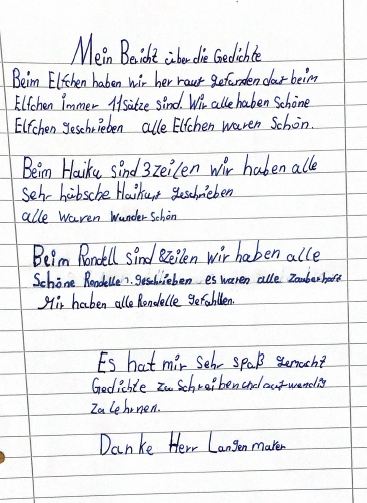 Mein Bericht über die Gedichte
Beim Elfchen haben wir her raus gefunden das beim
Elfchen immer 11 sätze sind. Wir alle haben Schöne
Elfchen geschrieben alle Elfchen waren Schön.
Beim Haiku sind 3 zeilen wir haben alle
sehr hübsche Haikus geschrieben
alle waren wunder schön
Beim Rondell sind 8 zeilen wir haben alle
Schöne Rondelle geschrieben es waren alle zauberhaft
Mir haben alle Rondelle gefahllen.
Es hat mir Sehr spaß gemacht
Gedichte zu Schreiben und auswendig
zu lehrnen.
Danke Herr